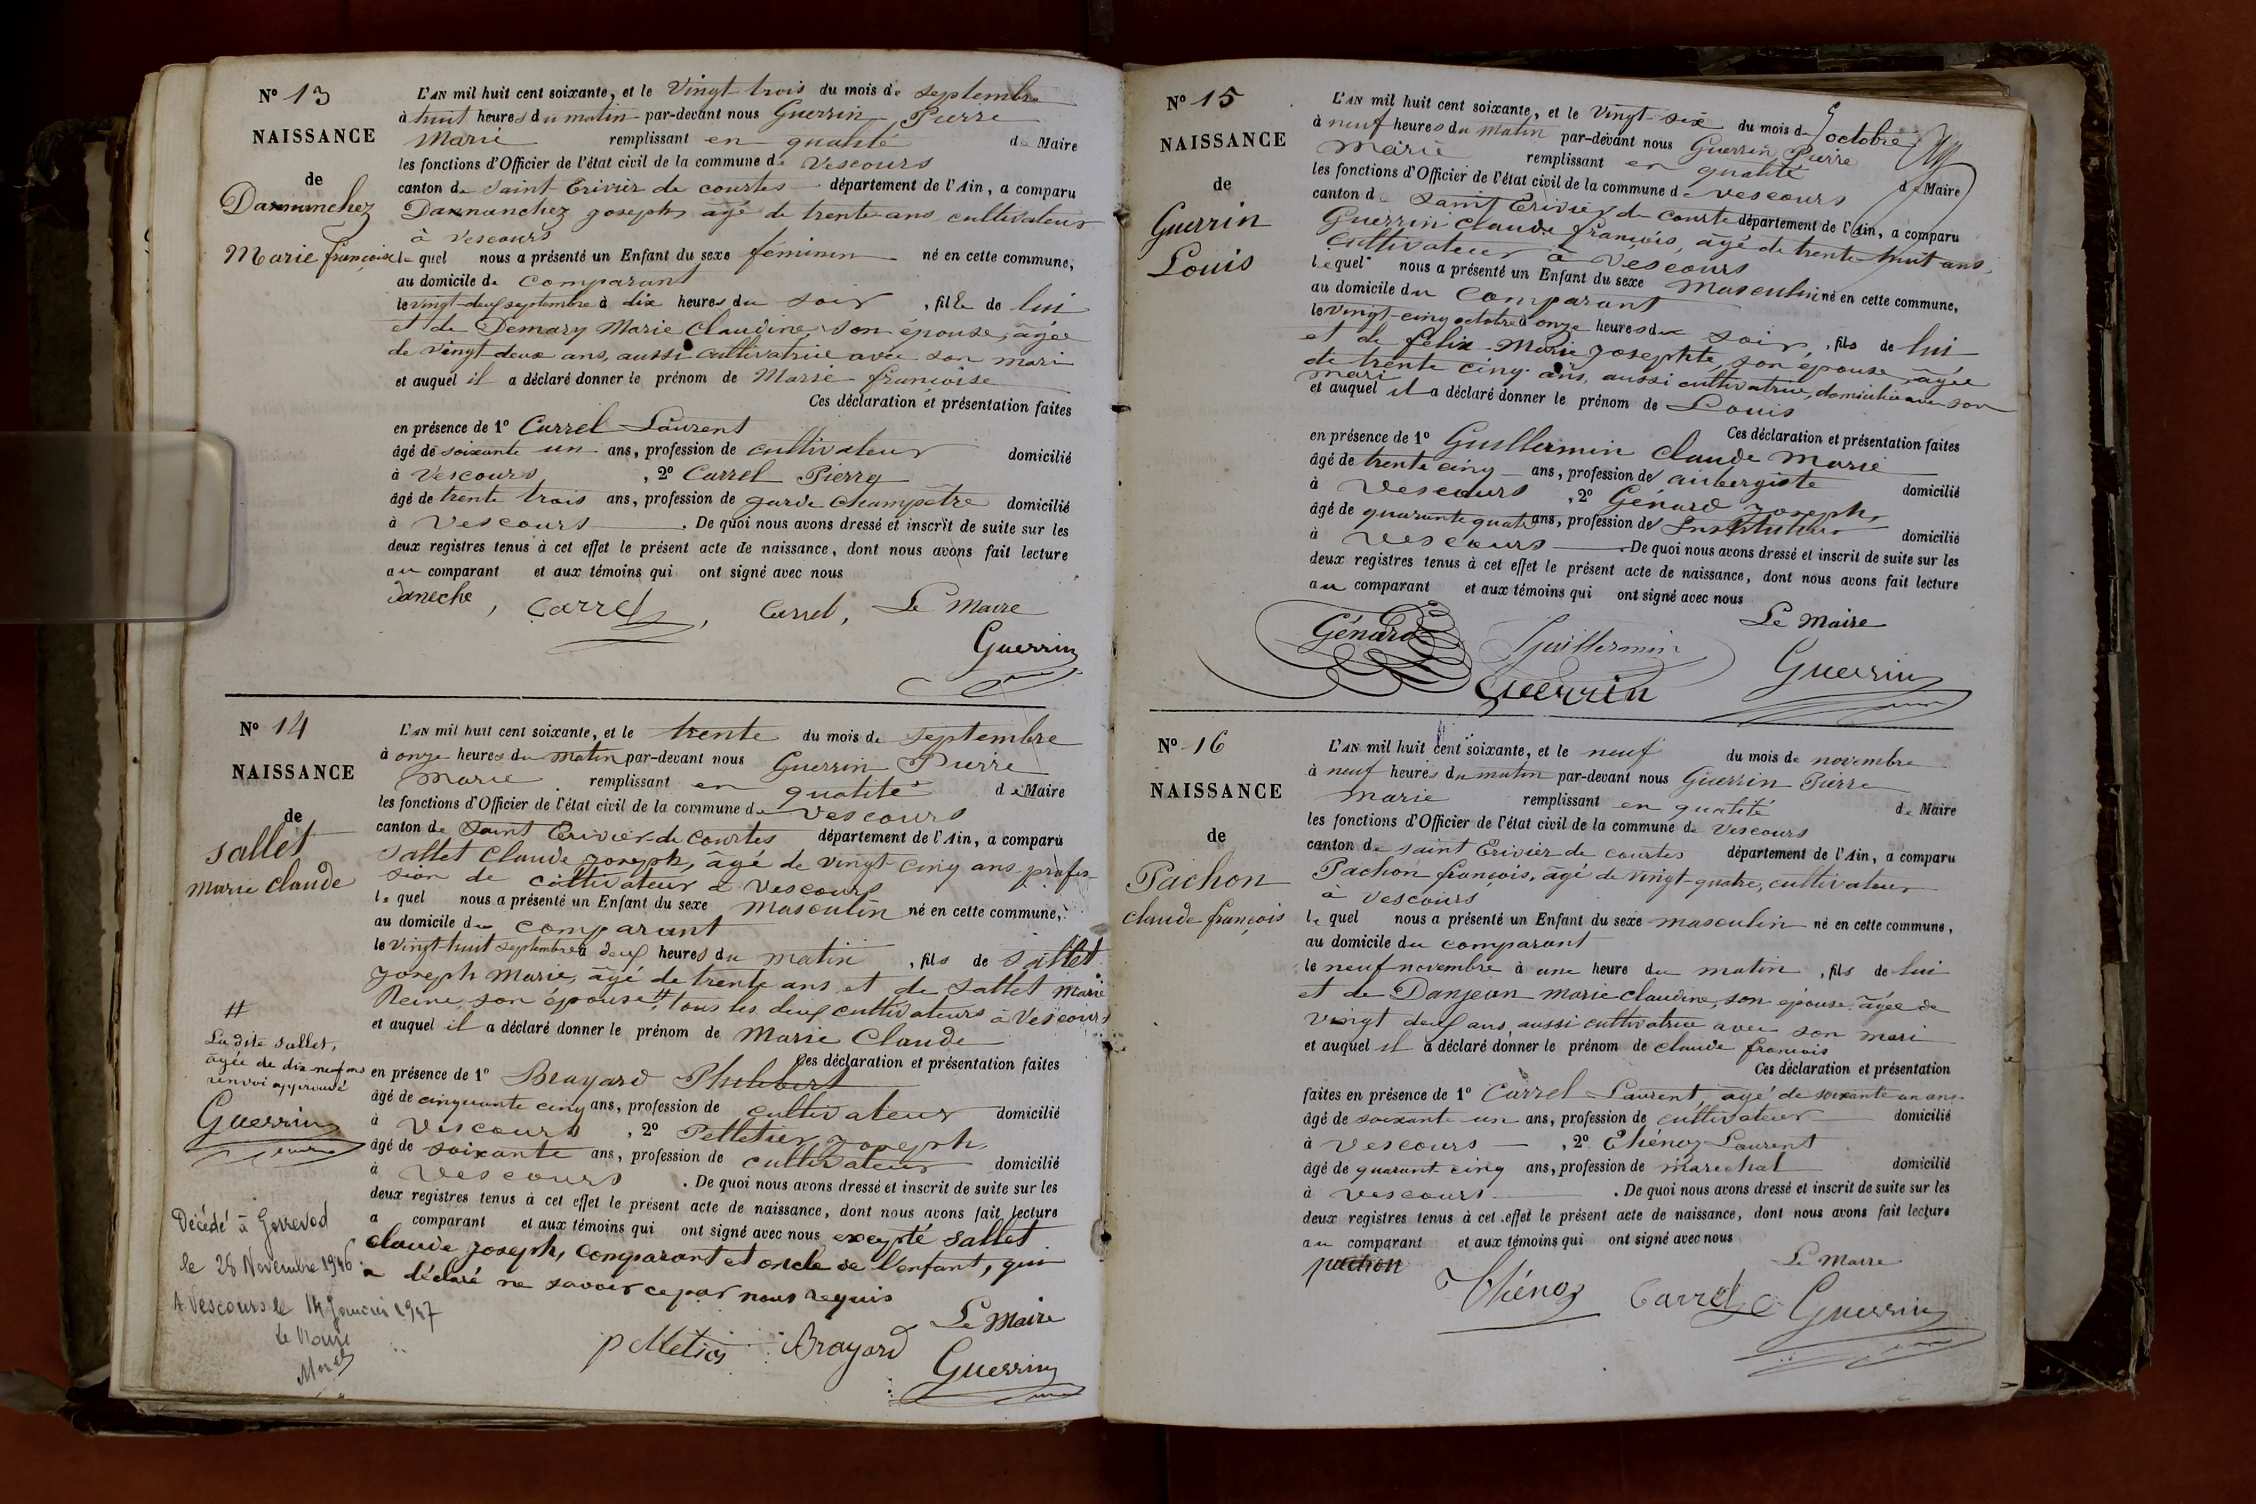 N° 13
NAISSANCE
de
Dannanchez
Marie françoise
L'AN mil huit cent soixante, et le Vingt trois du mois de septembre
à huit heures du matin par-devant nous Guerrin Pierre
Marie remplissant en qualité de Maire
les fonctions d'Officier de l'état civil de la commune de Vescours
canton de Saint Trivier de courtes département de l'Ain, a comparu
Dannanchez joseph, agé de trente ans, cultivateur
à Vescours
lequel nous a présenté un Enfant du sexe féminin né en cette commune,
au domicile du comparant
le vingt-deux septembre à dix heures du soir, fille de lui
et de Demary Marie Claudine, son épouse, âgée
de vingt deux ans, aussi cultivatrice avec son mari
et auquel il a déclaré donner le prénom de Marie françoise
Ces déclaration et présentation faites
en présence de 1° Carrel Laurent
âgé de soixante un ans, profession de cultivateur domicilié
à Vescours, 2° Carrel Pierre
âgé de trente trois ans, profession de garde Champetre domicilié
à Vescours. De quoi nous avons dressé et inscrit de suite sur les
deux registres tenus à cet effet le présent acte de naissance, dont nous avons fait lecture
au comparant et aux témoins qui ont signé avec nous
Daneche, Carrel, Carrel, Le Maire
Guerrin
N° 14
NAISSANCE
de
Sallet
Marie Claude
L'AN mil huit cent soixante, et le trente du mois de septembre
à onze heures du matin par-devant nous Guerrin Pierre
Marie remplissant en qualité de Maire
les fonctions d'Officier de l'état civil de la commune de Vescours
canton de Saint Trivier de Courtes département de l'Ain, a comparu
Sallet Claude joseph, âgé de vingt cinq ans, profes-
sion de cultivateur à Vescours
lequel nous a présenté un Enfant du sexe Masculin né en cette commune,
au domicile du comparant
le vingt-huit septembre à deux heures du matin, fils de Sallet
joseph Marie, âgé de trente ans et de Sallet Marie
Reine, son épouse # tous les deux cultivateurs à Vescours
et auquel il a déclaré donner le prénom de Marie Claude
Ces déclaration et présentation faites
en présence de 1° Brayard Philibert
âgé de cinquante cinq ans, profession de cultivateur domicilié
à Vescours, 2° Pelletier joseph
âgé de soixante ans, profession de cultivateur domicilié
à Vescours. De quoi nous avons dressé et inscrit de suite sur les
deux registres tenus à cet effet le présent acte de naissance, dont nous avons fait lecture
a comparant et aux témoins qui ont signé avec nous excepté Sallet
claude joseph, comparant et oncle de l'enfant, qui
a déclaré ne savoir ce par nous requis
Le Maire
Brayard
Guerrin
#
La dite Sallet,
âgée de dix-neuf ans
renvoi approuvé
Guerrin
Décédé à Gorrevod
le 28 Novembre 1946
A Vescours le 14 Janvier 1947
Le Maire
Morel
N° 15
NAISSANCE
de
Guerrin
Louis
L'AN mil huit cent soixante, et le Vingt-six du mois d'octobre
à neuf heures du matin par-devant nous Guerrin Pierre
Marie remplissant en qualité de Maire
les fonctions d'Officier de l'état civil de la commune de Vescours
canton de Saint Trivier de Courte département de l'Ain, a comparu
Guerrin Claude françois, âgé de trente huit ans,
cultivateur à Vescours
lequel nous a présenté un Enfant du sexe Masculin né en cette commune,
au domicile du comparant
le vingt-cinq octobre à onze heures du soir, fils de lui
et de félix Marie josephte, son épouse, âgée
de trente cinq ans, aussi cultivatrice, domiciliée avec son
mari
et auquel il a déclaré donner le prénom de Louis
Ces déclaration et présentation faites
en présence de 1° Guillermin Claude Marie
âgé de trente cinq ans, profession de aubergiste domicilié
à Vescours, 2° Génard joseph
âgé de quarante quatre ans, profession de Instituteur domicilié
à Vescours. De quoi nous avons dressé et inscrit de suite sur les
deux registres tenus à cet effet le présent acte de naissance, dont nous avons fait lecture
au comparant et aux témoins qui ont signé avec nous
Le Maire
Génard Guillermin Guerrin
Guerrin
N° 16
NAISSANCE
de
Pachon
claude françois
L'AN mil huit cent soixante, et le neuf du mois de novembre
à neuf heures du matin par-devant nous Guerrin Pierre
Marie remplissant en qualité de Maire
les fonctions d'Officier de l'état civil de la commune de Vescours
canton de Saint Trivier de courtes département de l'Ain, a comparu
Pachon françois, âgé de vingt-quatre, cultivateur
à Vescours
lequel nous a présenté un Enfant du sexe masculin né en cette commune,
au domicile du comparant
le neuf novembre à une heure du matin, fils de lui
et de Danjean Marie claudine, son épouse âgée de
vingt deux ans, aussi cultivatrice avec son mari
et auquel il a déclaré donner le prénom de claude françois
Ces déclaration et présentation
faites en présence de 1° Carrel Laurent, âgé de soixante un ans
âgé de soixante un ans, profession de cultivateur domicilié
à Vescours, 2° Thénoz Laurent
âgé de quarante cinq ans, profession de maréchal domicilié
à Vescours. De quoi nous avons dressé et inscrit de suite sur les
deux registres tenus à cet effet le présent acte de naissance, dont nous avons fait lecture
au comparant et aux témoins qui ont signé avec nous
Le Maire
pachon Thénoz Carrel Guerrin